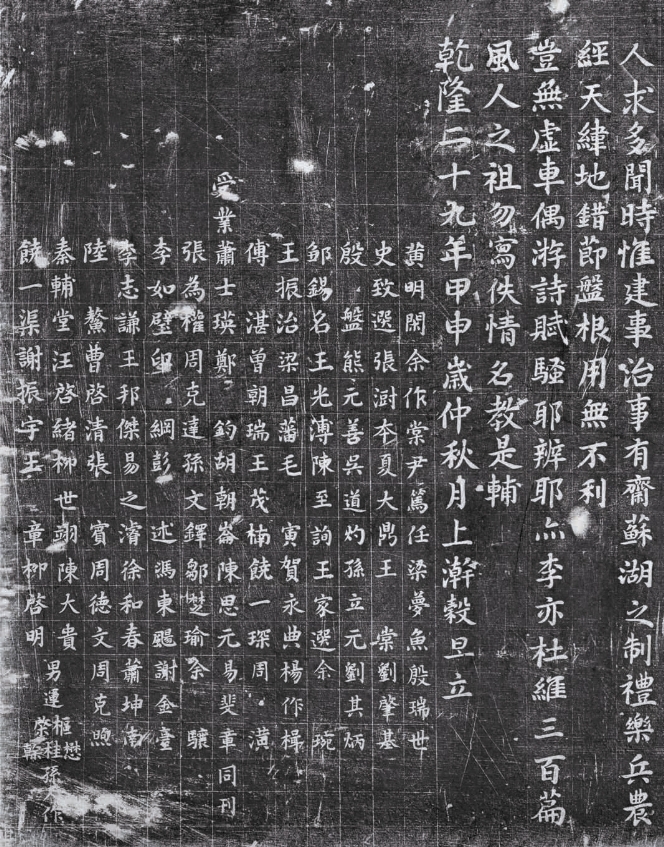 人求多聞時惟建事治事有齋蘇湖之制禮樂兵農
經天緯地錯節盤根用無不利
豈無虛車偶游詩賦騷耶辨耶亦李亦杜維三百篇
風人之祖勿寫佚情名教是輔
乾隆二十九年甲申歲仲秋月上澣穀旦立
黃明閑余作棠尹篤任梁夢魚殷瑞世
史致選張澍本夏大鼎王棠劉肇基
殷盤熊元善吳道灼孫立元劉其炳
鄒錫名王光溥陳至詢王家選余琬
王振治梁昌藩毛寅賀永典楊作楫
傅湛曾朝瑞王茂楠饒一琛周潢
受業蕭士瑛鄭鈞胡朝崙陳思元易斐章同刊
張為權周克達孫文鐸鄒楚瑜余驤
李如璧綱彭述馮東颺謝金臺
李志謙王邦傑易之濬徐和春蕭坤南
陸鰲曹啓清張賓周德文周克煦
秦輔堂汪啓緒柳世翊陳大貴
饒一渠謝振宇王章柳啓明
男運樞懋榮桂榦孫作